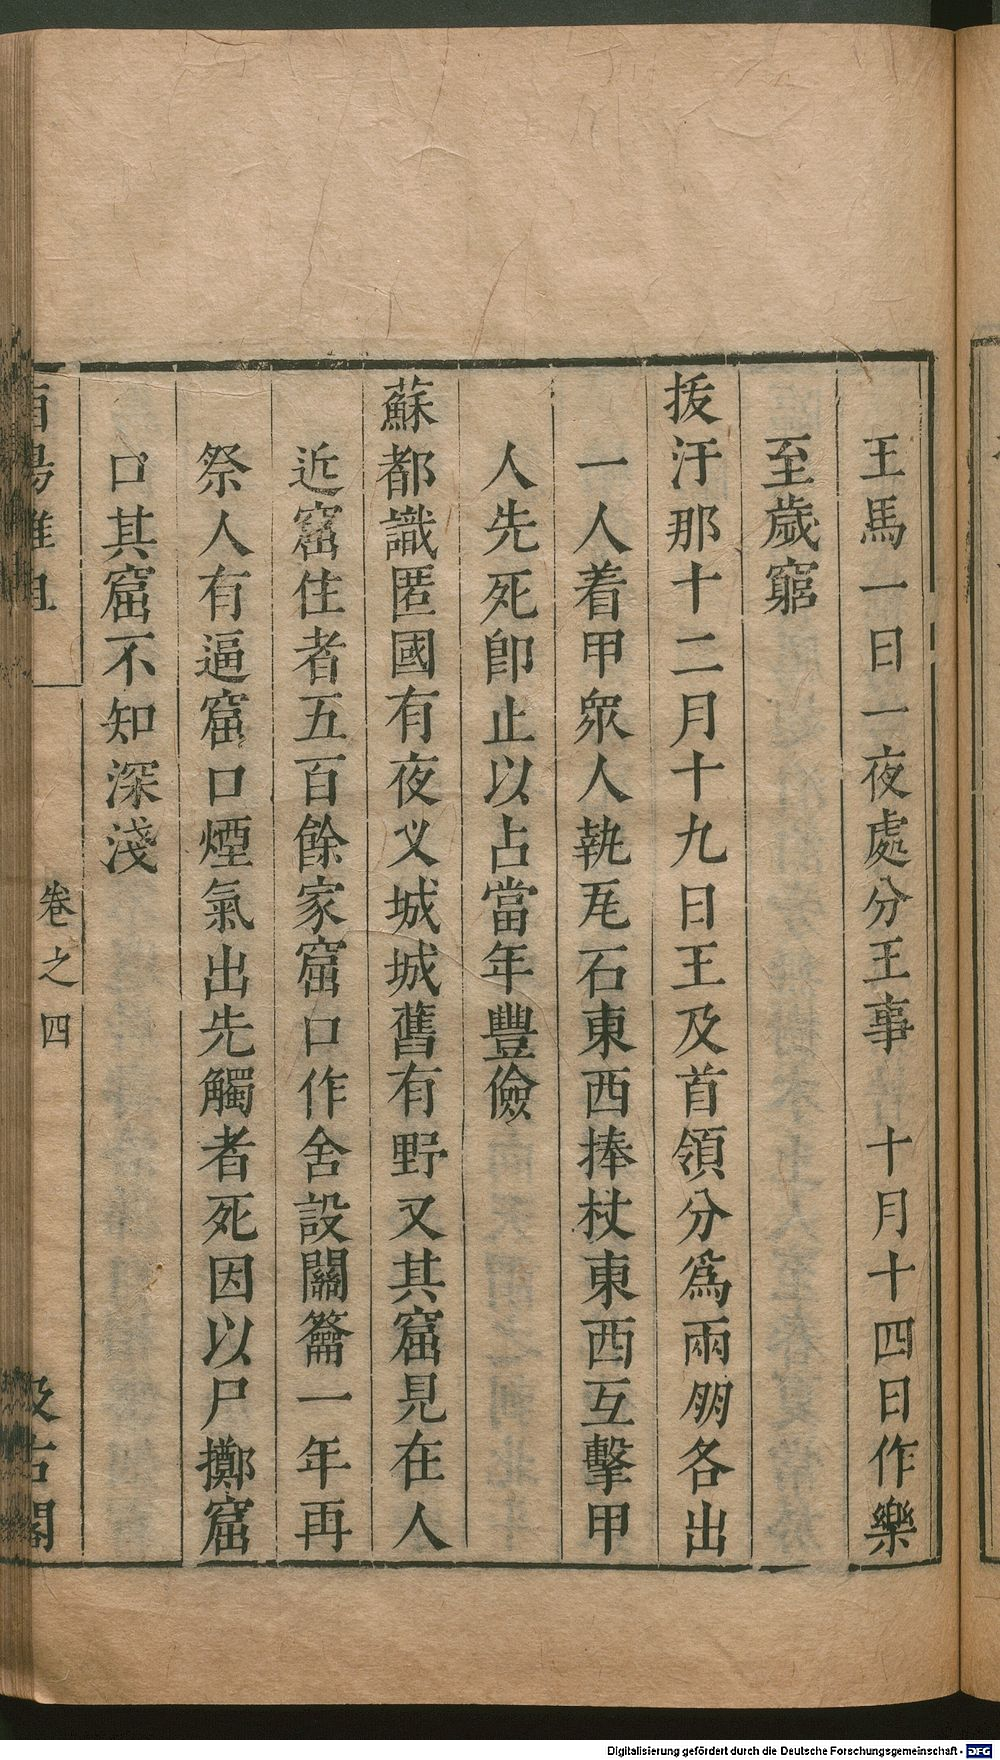 王馬一日一夜處分王事　十月十四日作樂
至歲窮
拔汗那十二月十九日王及首領分爲兩朋各出
一人着甲眾人執瓦石東西捧杖東西互擊甲
人先死即止以占當年豐儉
蘇都識匿國有夜义城城舊有野又其窟見在人
近窟住者五百餘家窟口作舍設關籥一年再
祭人有逼窟口煙氣出先觸者死因以尸擲窟
口其窟不知深淺
酉陽雜俎
卷之四
汲古閣
Digitalisierung gefördert durch die Deutsche Forschungsgemeinschaft - DFG